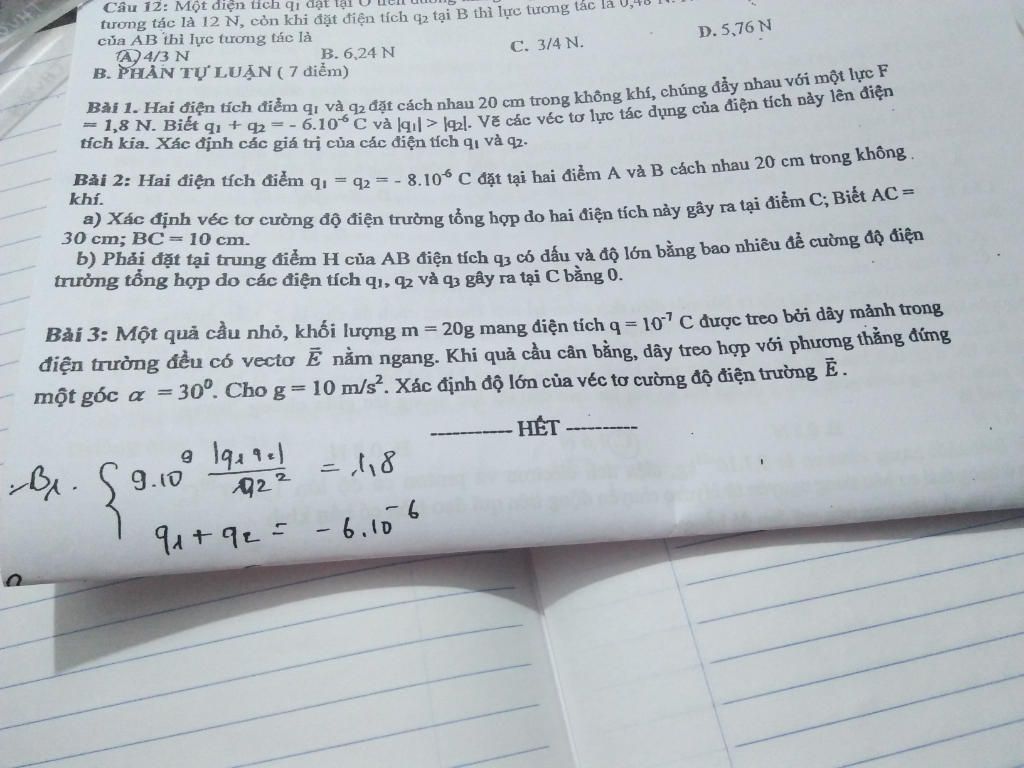 Câu 12: Một điện tích q₁ đặt tại O trên đường
tương tác là 12 N, còn khi đặt điện tích q₂ tại B thì lực tương tác là 0,48 N.
của AB thì lực tương tác là
A. 4/3 N B. 6,24 N C. 3/4 N. D. 5,76 N
B. PHẦN TỰ LUẬN ( 7 điểm)
Bài 1. Hai điện tích điểm q₁ và q₂ đặt cách nhau 20 cm trong không khí, chúng đẩy nhau với một lực F
= 1,8 N. Biết q₁ + q₂ = - 6.10⁻⁶ C và |q₁| > |q₂|. Vẽ các véc tơ lực tác dụng của điện tích này lên điện
tích kia. Xác định các giá trị của các điện tích q₁ và q₂.
Bài 2: Hai điện tích điểm q₁ = q₂ = - 8.10⁻⁶ C đặt tại hai điểm A và B cách nhau 20 cm trong không
khí.
a) Xác định véc tơ cường độ điện trường tổng hợp do hai điện tích này gây ra tại điểm C; Biết AC =
30 cm; BC = 10 cm.
b) Phải đặt tại trung điểm H của AB điện tích q₃ có dấu và độ lớn bằng bao nhiêu để cường độ điện
trường tổng hợp do các điện tích q₁, q₂ và q₃ gây ra tại C bằng 0.
Bài 3: Một quả cầu nhỏ, khối lượng m = 20g mang điện tích q = 10⁻⁷ C được treo bởi dây mảnh trong
điện trường đều có vectơ E⃗ nằm ngang. Khi quả cầu cân bằng, dây treo hợp với phương thẳng đứng
một góc α = 30⁰. Cho g = 10 m/s². Xác định độ lớn của véc tơ cường độ điện trường E⃗ .
------------ HẾT ----------
B1. { 9.10⁹ |q₁q₂| / 0,2² = 1,8
q₁ + q₂ = - 6.10⁻⁶